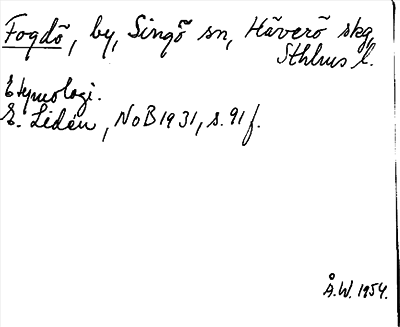 Fogdö, by, Singö sn, Häverö skg,
Sthlms l.
Etymologi.
E. Lidén, NoB 1931, s. 91 f.
Å.W. 1954.